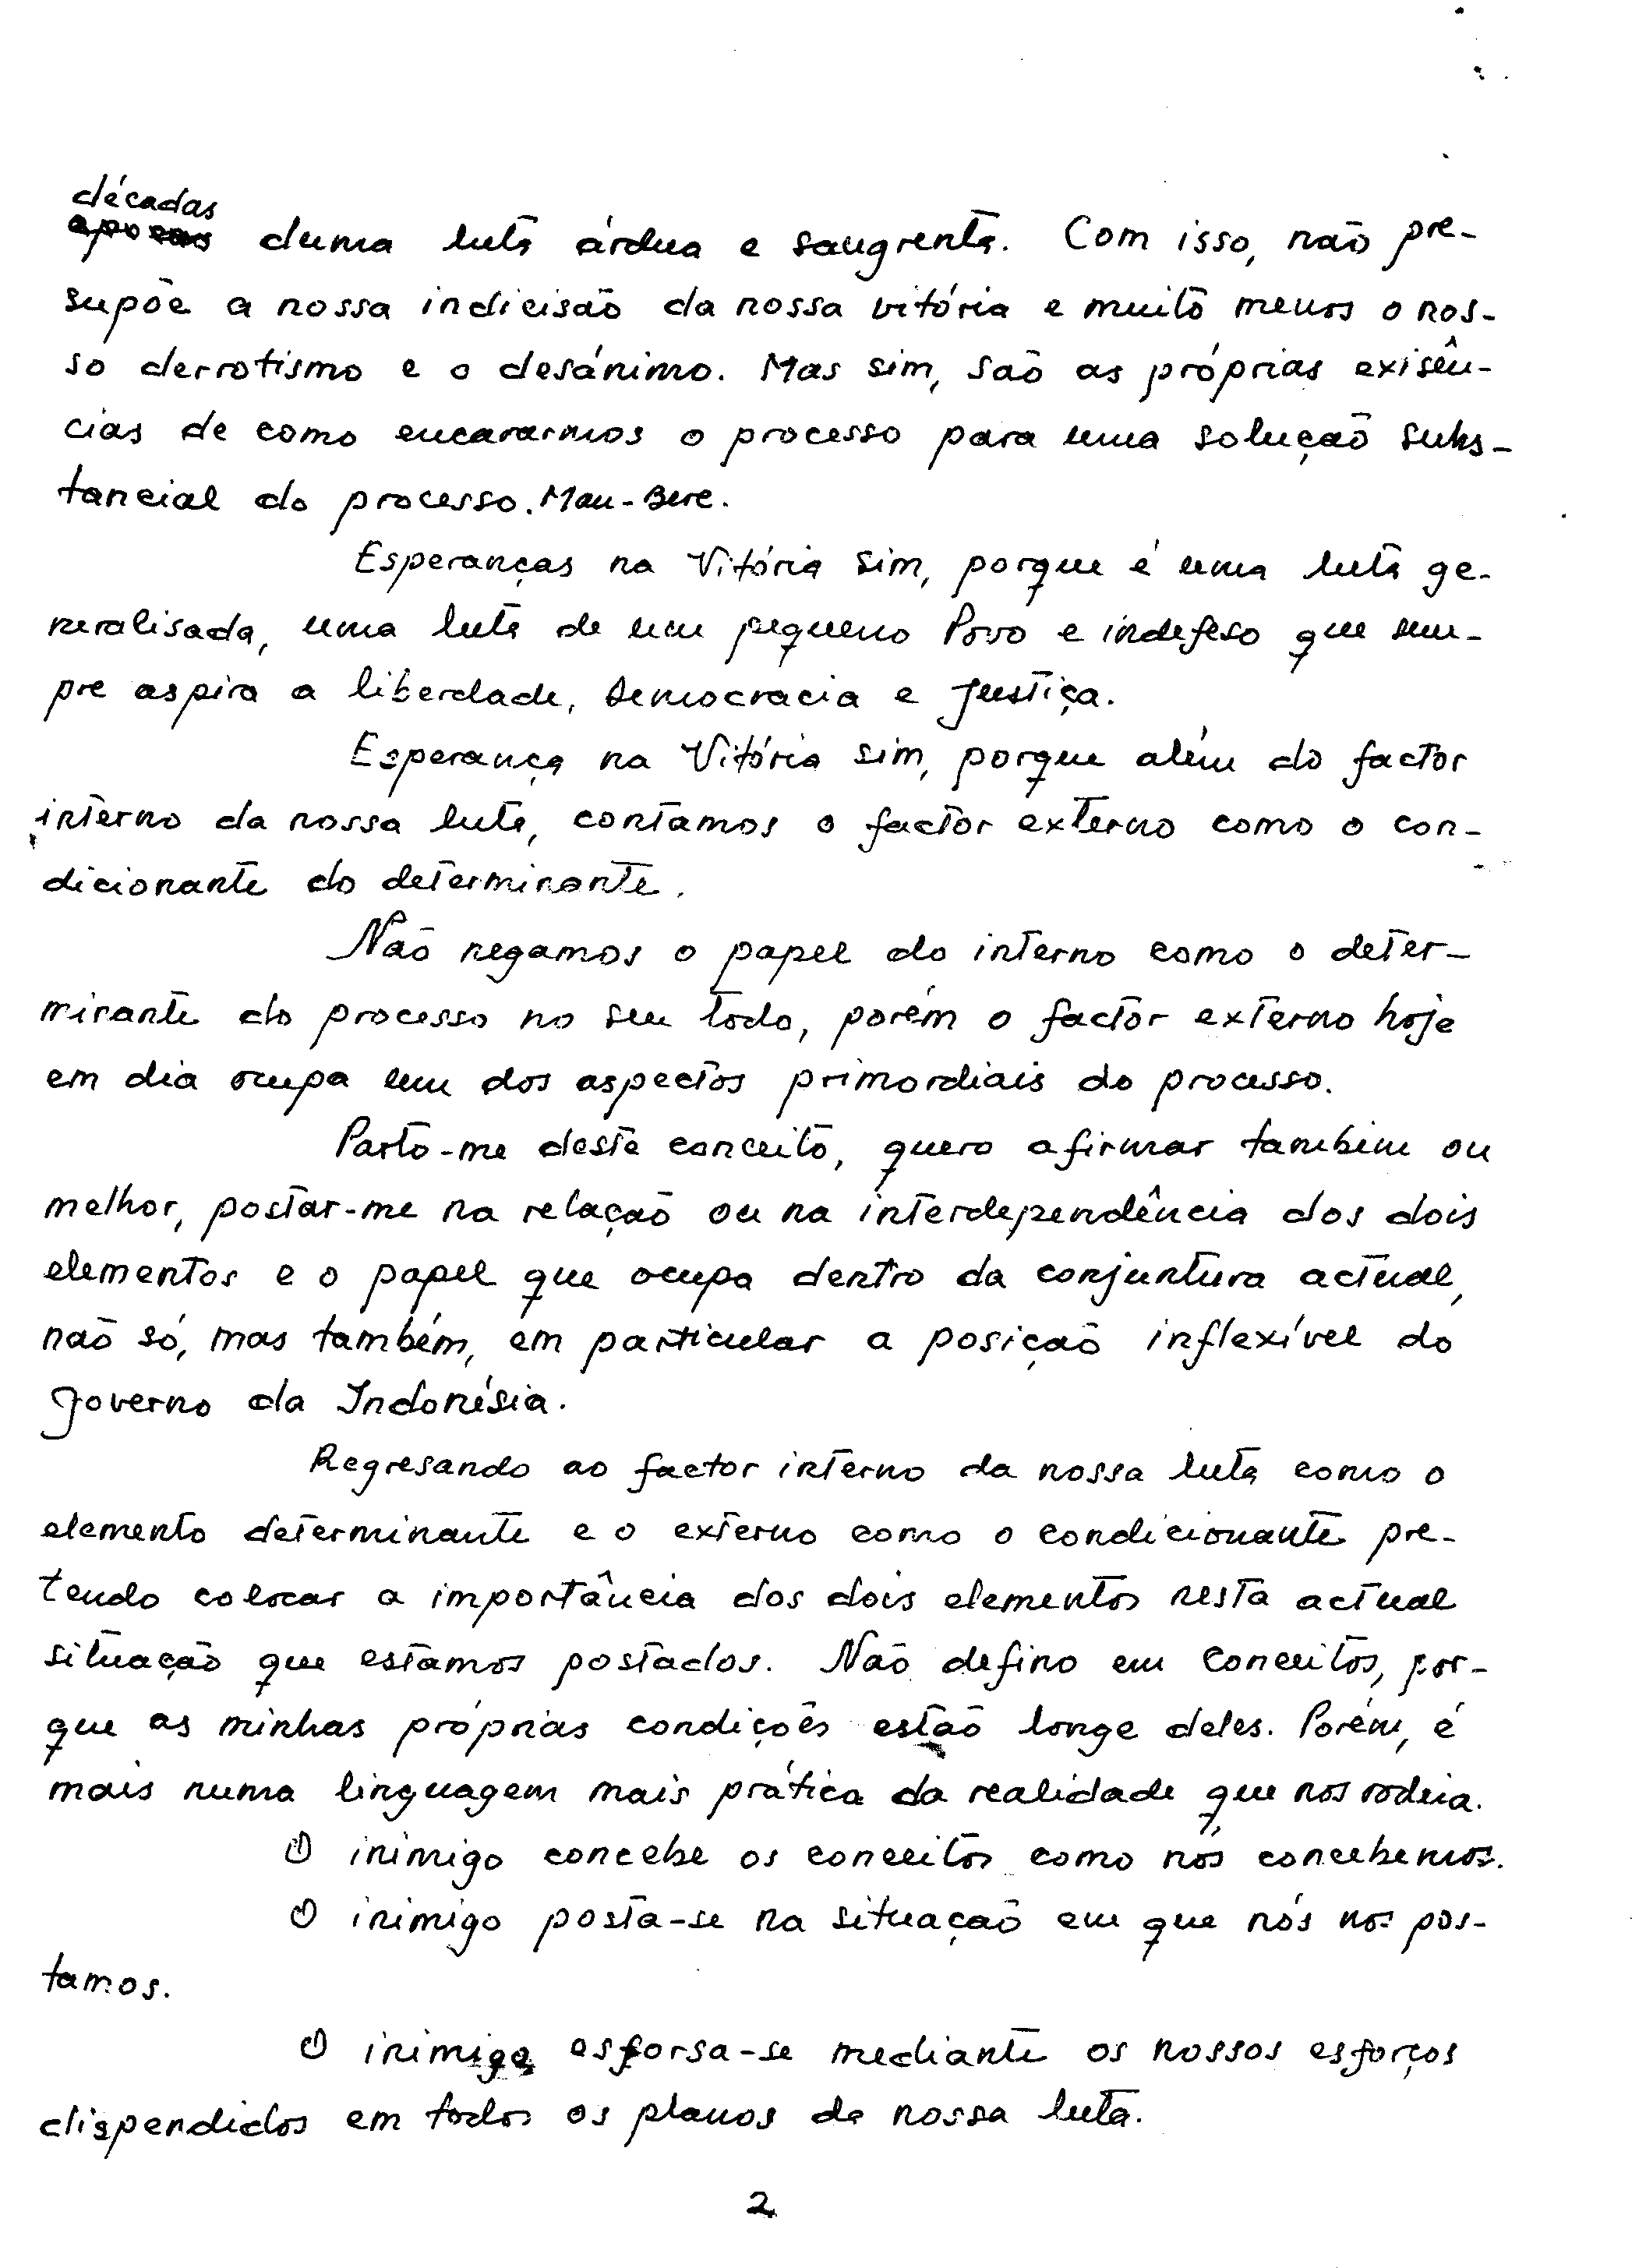 décadas
duma luta árdua e sangrenta. Com isso, não pre-
supõe a nossa indicisão da nossa vitória e muito menos o nos-
so derrotismo e o desánimo. Mas sim, são as próprias exisên-
cias de como encararmos o processo para uma solução subs-
tancial do processo. Mau-Bere.
Esperanças na Vitória sim, porque é uma luta ge-
neralisada, uma luta de um pequeno Povo e indefeso que sem-
pre aspira a liberdade, Democracia e Justiça.
Esperança na Vitória sim, porque além do factor
interno da nossa luta, contamos o factor externo como o con-
dicionante do determinante.
Não negamos o papel do interno como o deter-
minante do processo no seu todo, porém o factor externo hoje
em dia ocupa um dos aspectos primordiais do processo.
Parto-me deste conceito, quero afirmar também ou
melhor, postar-me na relação ou na interdependência dos dois
elementos e o papel que ocupa dentro da conjuntura actual,
não só, mas também, em particular a posição inflexível do
Governo da Indonésia.
Regresando ao factor interno da nossa luta como o
elemento determinante e o externo como o condicionante pre-
tendo colocar a importância dos dois elementos nesta actual
situação que estamos postados. Não defino em conceitos, por-
que as minhas próprias condições estão longe deles. Porém, é
mais numa linguagem mais prática da realidade que nos rodeia.
O inimigo concebe os conceitos como nós concebemos.
O inimigo posta-se na situação em que nós nos pos-
tamos.
O inimigo esforsa-se mediante os nossos esforços
dispendidos em todos os planos da nossa luta.
2